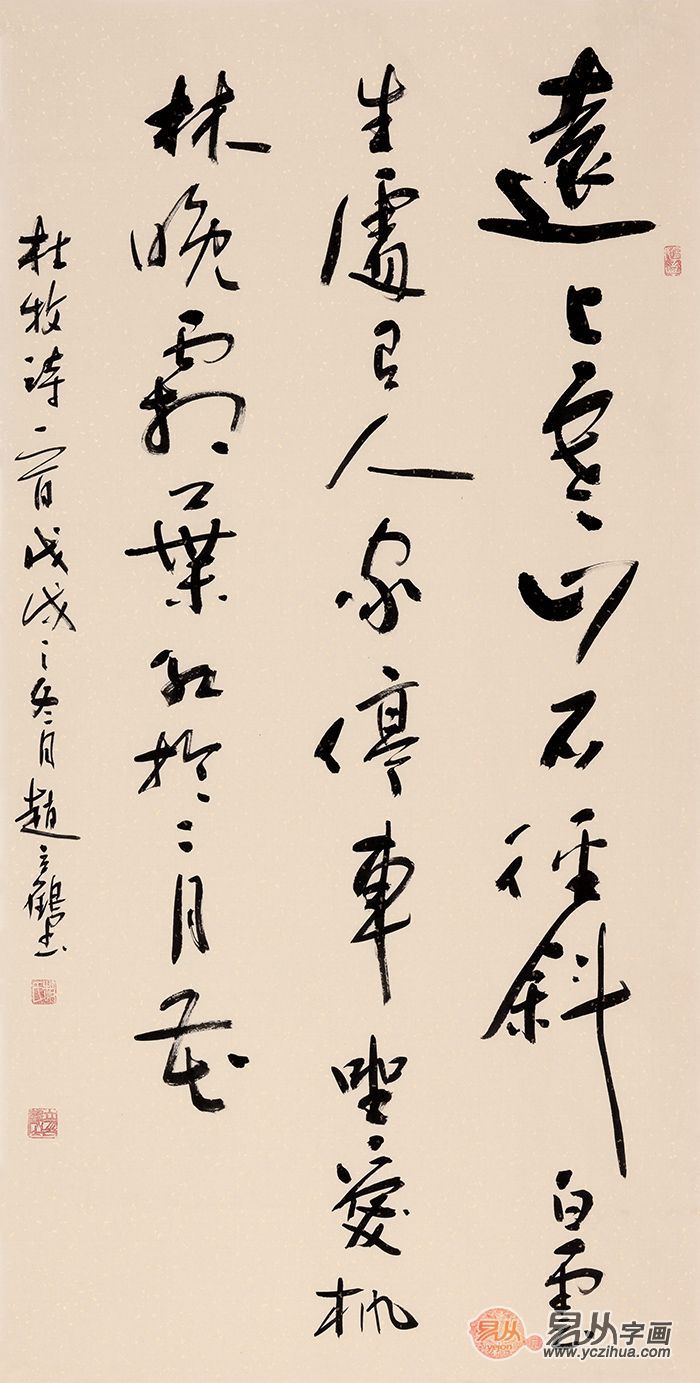 遠上寒山石徑斜白雲
生處有人家停車坐愛楓
林晚霜葉紅於二月花
杜牧詩一首戊戌之冬月趙鶴書
易从
yejon
易从字画
www.yczihua.com